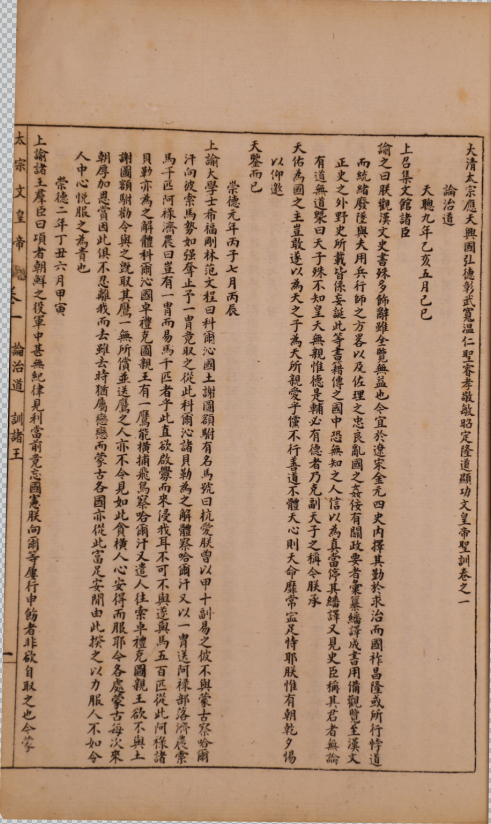 大清太宗應天興國弘德彰武寬溫仁聖睿孝敬敏昭定隆道顯功文皇帝聖訓卷之一
論治道
天聰九年乙亥五月己巳
上召集文館諸臣
諭之曰朕觀漢文史書殊多飾辭雖全覽無益也今宜於遼宋金元四史內擇其勤於求治而國祚昌隆或所行悖道
而統緒廢墜與夫用兵行師之方畧以及佐理之忠良亂國之姦佞有關政要者彙纂繙譯成書用備觀覽至漢文
正史之外野史所載皆係妄誕此等書籍傳之國中恐無知之人信以為真當停其繙譯又見史臣稱其君者無論
有道無道槩曰天子殊不知皇天無親惟德是輔必有德者乃克副天子之稱今朕承
天佑為國之主豈敢遂以為天之子為天所親愛乎儻不行善道不體天心則天命靡常寧足恃耶朕惟有朝乾夕惕
以仰邀
天鑒而已
崇德元年丙子七月丙辰
上諭大學士希福剛林范文程曰科爾沁國土謝圖額駙有名馬號曰杭愛朕曾以甲十副易之彼不與蒙古察哈爾
汗向彼索馬勢如強奪止予一冑竟取之從此科爾沁諸貝勒為之解體察哈爾汗又以一冑送阿祿部落濟農索
馬千匹阿祿濟農曰豈有一冑而易馬千匹者乎此直欲啟釁而來侵我耳不可不與遂與馬五百匹從此阿祿諸
貝勒亦為之解體科爾沁國卓禮克圖親王有一鷹能橫捕飛鳥察哈爾汗又遣人往索卓禮克圖親王欲不與土
謝圖額駙勸令與之旣取其鷹一無所償並送鷹之人亦不令見如此貪橫人心安得而服耶今各處蒙古每次來
朝厚加恩賞因此俱不忍離我而去雖去時猶屬戀戀而蒙古各國亦從此富足安閒由此揆之以力服人不如令
人中心悅服之為貴也
崇德二年丁丑六月甲寅
上諭諸王羣臣曰頃者朝鮮之役軍中甚無紀律見利當前竟忘國憲朕向爾等屢行申飭者非欲自取之也今蒙
太宗文皇帝 卷一 論治道 訓諸王 一